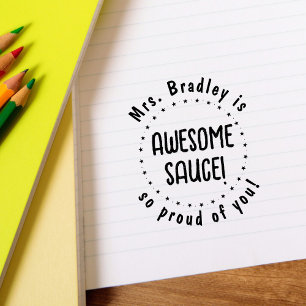 Mrs. Bradley is
AWESOME
SAUCE!
so proud of you!